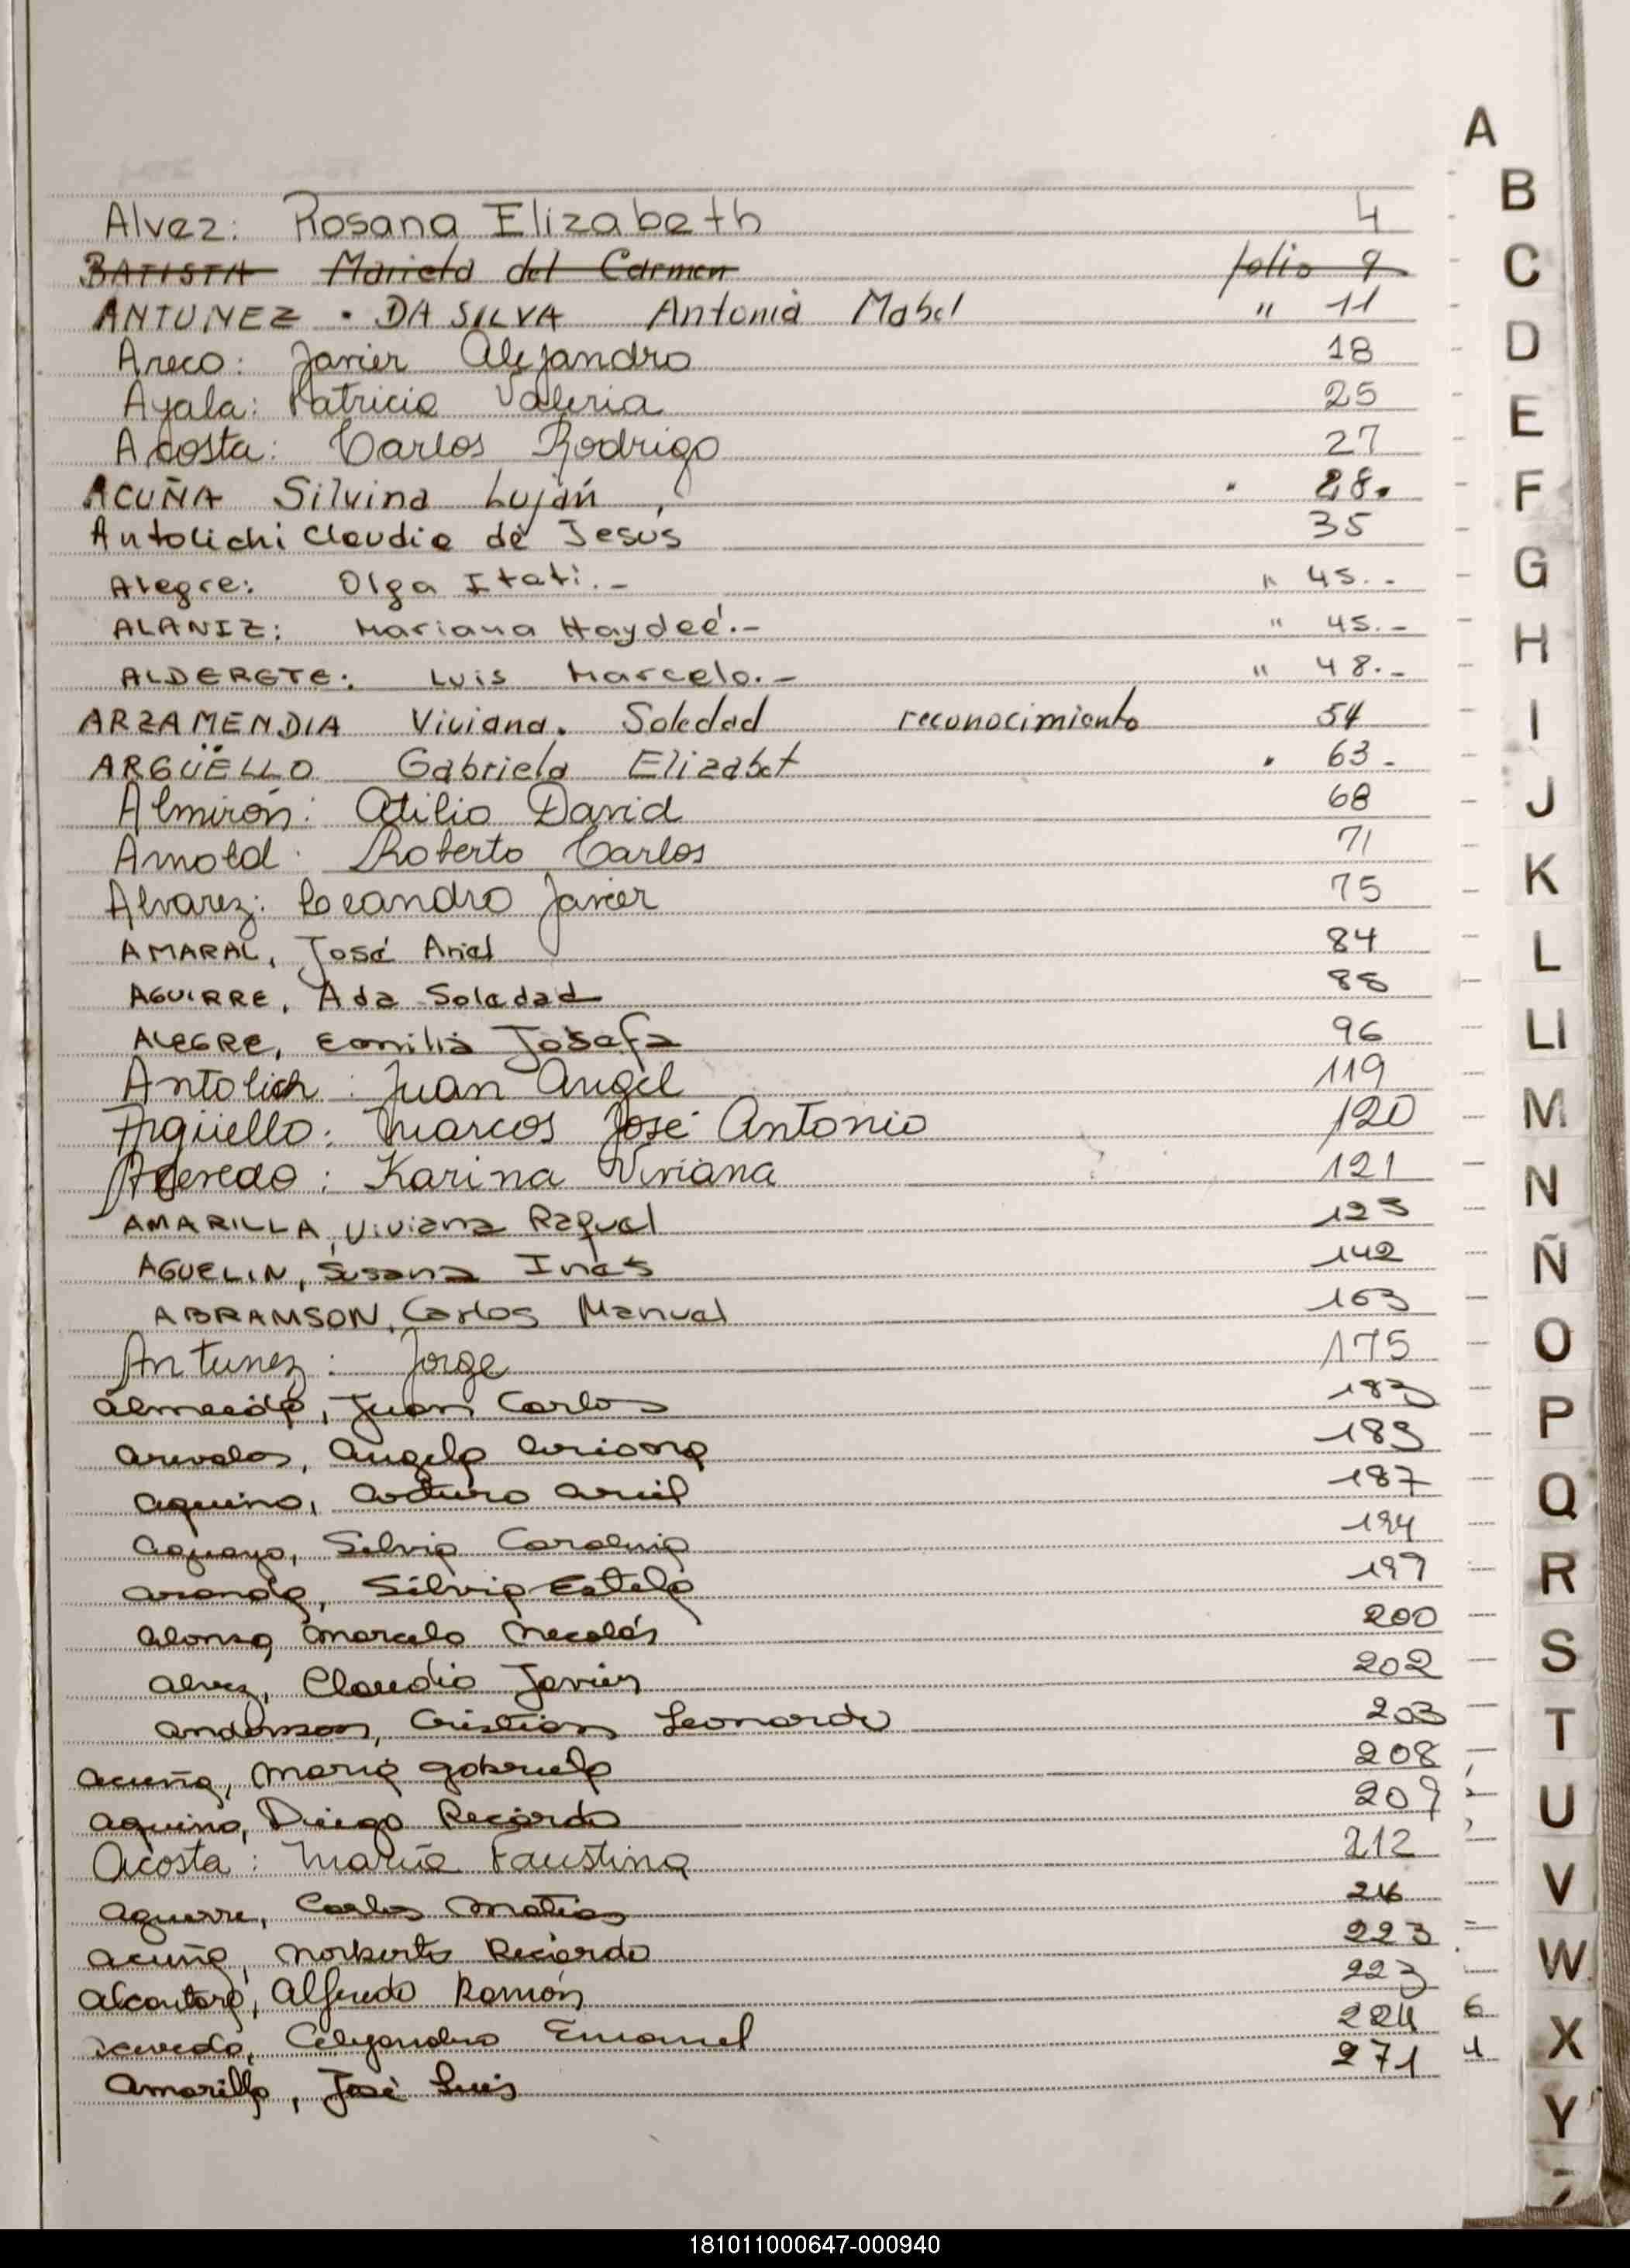 A
B
C
D
E
F
G
H
I
J
K
L
Ll
M
N
Ñ
O
P
Q
R
S
T
U
V
W
X
Y
Z
Alvez: Rosana Elizabeth 4
BATISTA Mariela del Carmen folio 9
ANTUNEZ · DA SILVA Antonia Mabel " 11
Areco: Javier Alejandro 18
Ayala: Patricia Valeria 25
Acosta: Carlos Rodrigo 27
ACUÑA Silvina Luján 28.
Antolichi Claudia de Jesús 35
Alegre: Olga Itati.- " 45.-
ALANIZ: Mariana Haydeé.- " 45.-
ALDERETE: Luis Marcelo.- " 48.-
ARZAMENDIA Viviana. Soledad reconocimiento 54
ARGÜELLO Gabriela Elizabet 63-
Almirón: Atilio David 68
Arnold: Roberto Carlos 71
Alvarez: Leandro Javier 75
AMARAL, José Ariel 84
AGUIRRE, Ada Soledad 88
ALEGRE, Emilia Josefa 96
Antolich: Juan Angel 119
Argüello: Marcos José Antonio 120
Acevedo: Karina Viviana 121
AMARILLA, Viviana Raquel 123
AGUELIN, Susana Inés 142
ABRAMSON, Carlos Manuel 163
Antunez: Jorge 175
Almeida, Juan Carlos 183
Arevalos, Angela Liriana 183
Aquino, Arturo Ariel 187
Aguayo, Silvia Carolina 194
Aranda, Silvia Estela 197
Alonso Marcelo Nicolás 200
Alvez, Claudio Javier 202
Anderson, Cristian Leonardo 203
Acuña, Maria Gabriela 208
Aquino, Diego Ricardo 209
Acosta: María Faustina 212
Aguirre, Carlos Matias 216
Acuña, Norberto Ricardo 223
Alcantara, Alfredo Ramón 223
Acevedo, Alejandro Emanuel 224 6
Amarilla, José Luis 271 4
181011000647-000940